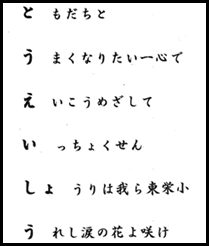 と もだちと
う まくなりたい一心で
え いこうめざして
い っちょくせん
しょ うりは我ら東栄小
う れし涙の花よ咲け